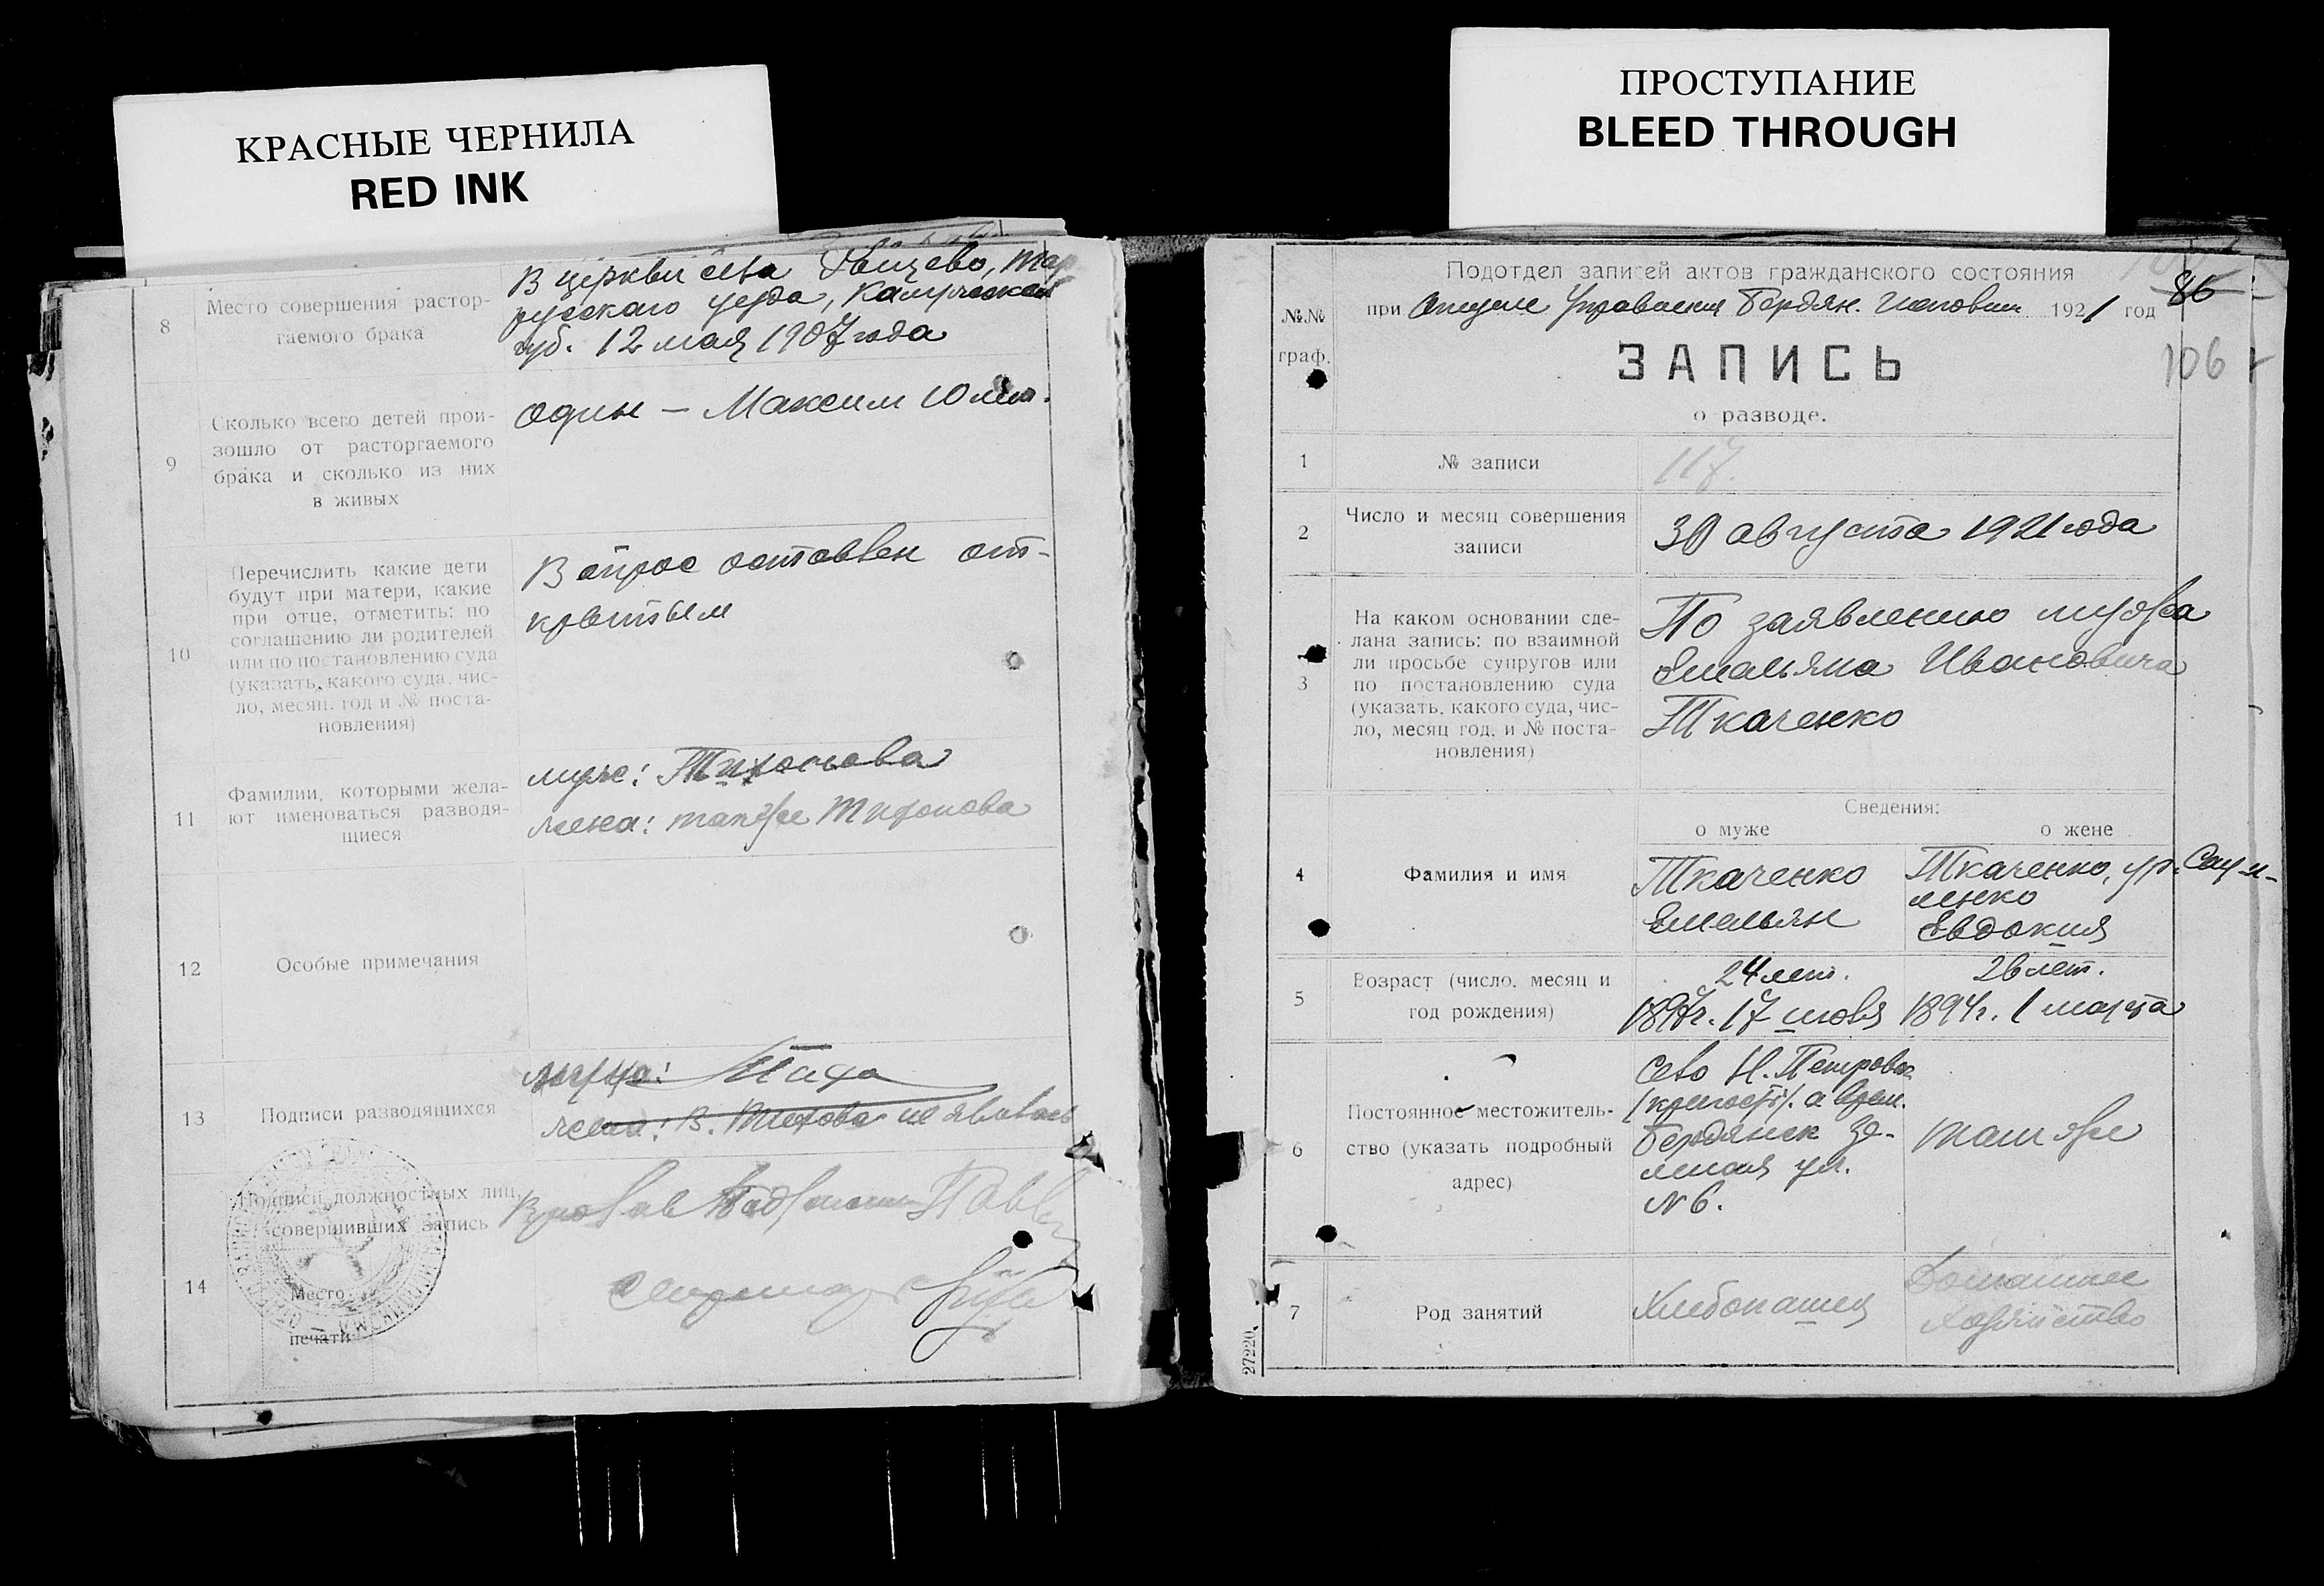 КРАСНЫЕ ЧЕРНИЛА
RED INK
8
Место совершения растор-
гаемого брака
В церкви села
уезда, Калужской
губ. 12 мая 1907 года
9
Сколько всего детей прои-
зошло от расторгаемого
брака и сколько из них
в живых
один — Максим 10 лет.
10
Перечислить какие дети
будут при матери, какие
при отце, отметить: по
соглашению ли родителей
или по постановлению суда
(указать, какого суда, чис-
ло, месяц, год и № поста-
новления)
Вопрос оставлен от-
крытым
11
Фамилии, которыми жела-
ют именоваться разводя-
щиеся
муж: Тихонова
жена: также Тихонова
12
Особые примечания
13
Подписи разводящихся
жена: не явилась
14
Подписи должностных лиц,
совершивших запись
Место
печати
ПРОСТУПАНИЕ
BLEED THROUGH
Подотдел записей актов гражданского состояния
№.№
граф.
при Отделе Управления Бердян. Исполком 1921 год
86
106
ЗАПИСЬ
о разводе.
1
№ записи
117.
2
Число и месяц совершения
записи
30 августа 1921 года
3
На каком основании сде-
лана запись: по взаимной
ли просьбе супругов или
по постановлению суда
(указать, какого суда, чис-
ло, месяц год, и № поста-
новления)
По заявлению мужа
Емельяна Ивановича
Ткаченко
Сведения:
о муже
о жене
4
Фамилия и имя
Ткаченко
Емельян
Ткаченко, ур.
Евдокия
5
Возраст (число, месяц и
год рождения)
24 лет.
1897г. 17 июля
26 лет.
1894г. 1 марта
6
Постоянное местожитель-
ство (указать подробный
адрес)
Село Н. Петровка
/крепость/. а врем.
Бердянск Зе-
мская ул.
№ 6.
там же
7
Род занятий
Хлебопашец
Домашнее
хозяйство
27220.